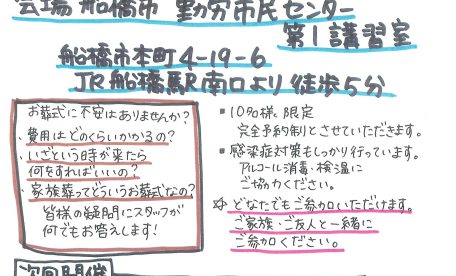 会場 船橋市 勤労市民センター
第1講習室
船橋市本町4-19-6
JR船橋駅南口より徒歩5分
お葬式に不安はありませんか?
・費用はどのくらいかかるの?
・いざという時が来たら
何をすればいいの?
・家族葬ってどういうお葬式なの?
皆様の疑問にスタッフが
何でもお答えします!
▪10名様限定
完全予約制とさせていただきます。
▪感染症対策もしっかり行っています。
アルコール消毒・検温に
ご協力ください。
☆どなたでもご参加いただけます。
ご家族・ご友人と一緒に
ご参加ください。
次回開催